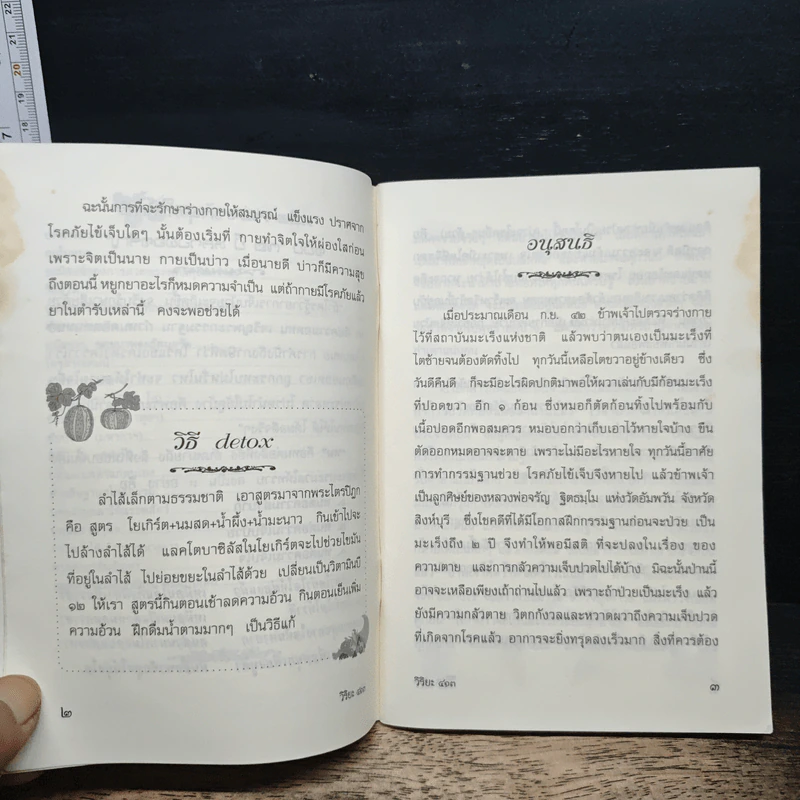 22
21
20
19
18
17
ฉะนั้นการที่จะรักษาร่างกายให้สมบูรณ์ แข็งแรง ปราศจาก
โรคภัยไข้เจ็บใดๆ นั้นต้องเริ่มที่ กายทำจิตใจให้ผ่องใสก่อน
เพราะจิตเป็นนาย กายเป็นบ่าว เมื่อนายดี บ่าวก็มีความสุข
ถึงตอนนี้ หยูกยาอะไรก็หมดความจำเป็น แต่ถ้ากายมีโรคภัยแล้ว
ยาในตำรับเหล่านี้ คงจะพอช่วยได้
วิธี detox
ลำไส้เล็กตามธรรมชาติ เอาสูตรมาจากพระไตรปิฎก
คือ สูตร โยเกิร์ต+นมสด+น้ำผึ้ง+น้ำมะนาว กินเข้าไปจะ
ไปล้างลำไส้ได้ แลคโตบาซิลัสในโยเกิร์ตจะไปช่วยไขมัน
ที่อยู่ในลำไส้ ไปย่อยขยะในลำไส้ด้วย เปลี่ยนเป็นวิตามินบี
๑๒ ให้เรา สูตรนี้กินตอนเช้าลดความอ้วน กินตอนเย็นเพิ่ม
ความอ้วน ฝึกดื่มน้ำตามมากๆ เป็นวิธีแก้
๒
วิริยะ ๔๑๓
อนุสนธิ
เมื่อประมาณเดือน ก.ย. ๔๒ ข้าพเจ้าไปตรวจร่างกาย
ไว้ที่สถาบันมะเร็งแห่งชาติ แล้วพบว่าตนเองเป็นมะเร็งที่
ไตซ้ายจนต้องตัดทิ้งไป ทุกวันนี้เหลือไตขวาอยู่ข้างเดียว ซึ่ง
วันดีคืนดี ก็จะมีอะไรผิดปกติมาพอให้ผวาเล่นกับมีก้อนมะเร็ง
ที่ปอดขวา อีก ๑ ก้อน ซึ่งหมอก็ตัดก้อนทิ้งไปพร้อมกับ
เนื้อปอดอีกพอสมควร หมอบอกว่าเก็บเอาไว้หายใจบ้าง ขืน
ตัดออกหมดอาจจะตาย เพราะไม่มีอะไรหายใจ ทุกวันนี้อาศัย
การทำกรรมฐานช่วย โรคภัยไข้เจ็บจึงหายไป แล้วข้าพเจ้า
เป็นลูกศิษย์ของหลวงพ่อจรัญ ฐิตธมฺโม แห่งวัดอัมพวัน จังหวัด
สิงห์บุรี ซึ่งโชคดีที่ได้มีโอกาสฝึกกรรมฐานก่อนจะป่วย เป็น
มะเร็งถึง ๒ ปี จึงทำให้พอมีสติ ที่จะปลงในเรื่อง ของ
ความตาย และการกลัวความเจ็บปวดไปได้บ้าง มิฉะนั้นป่านนี้
อาจจะเหลือเพียงเถ้าถ่านไปแล้ว เพราะถ้าป่วยเป็นมะเร็ง แล้ว
ยังมีความกลัวตาย วิตกกังวลและหวาดผวาถึงความเจ็บปวด
ที่เกิดจากโรคแล้ว อาการจะยิ่งทรุดลงเร็วมาก สิ่งที่ควรต้อง
วิริยะ ๔๑๓
๓